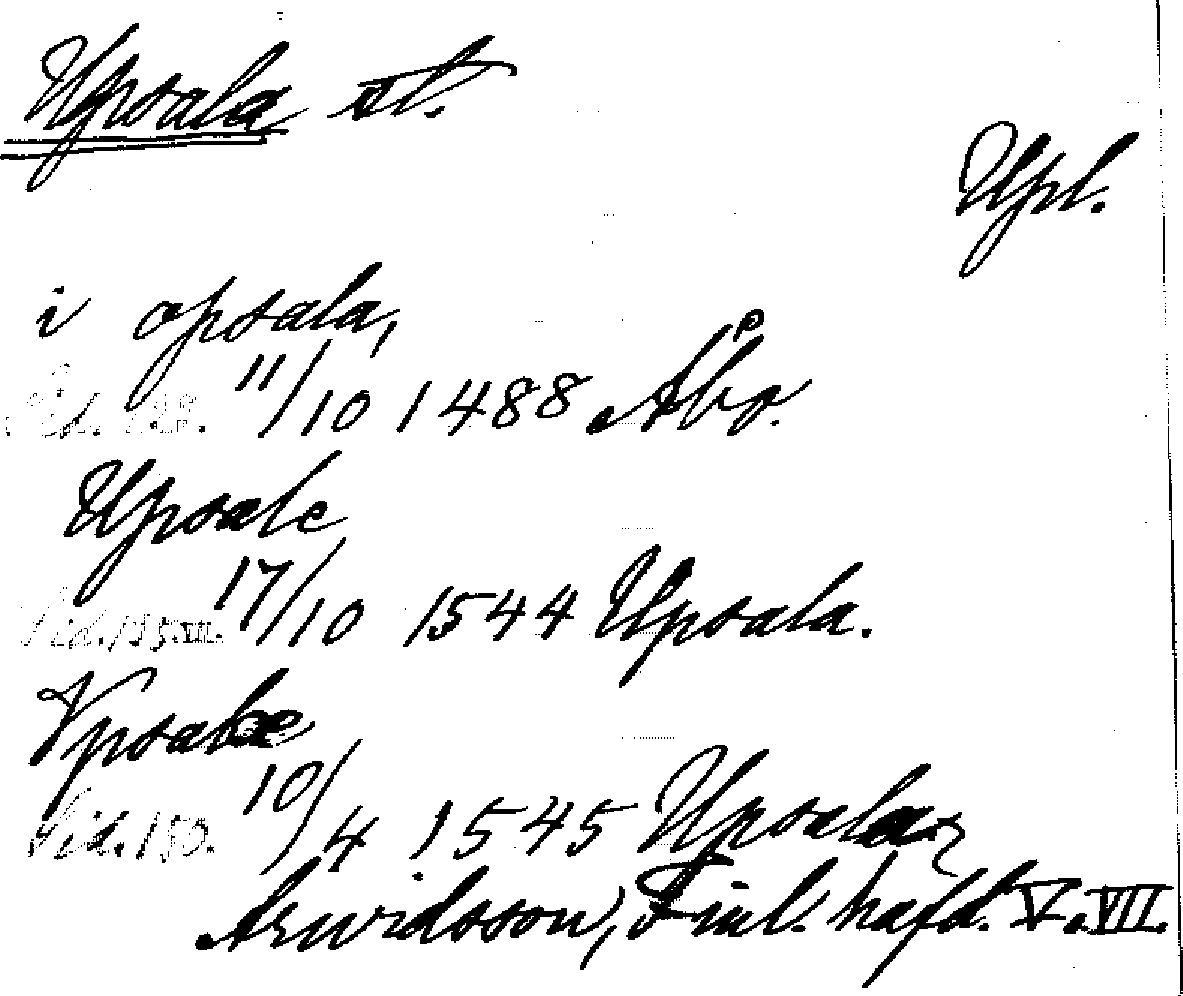 Upsala st.
Upl.
i opsala,
11/10 1488 Åbo.
Upsale
17/10 1544 Upsala.
Vpsale
Sid. 150. 10/4 1545 Upsala,
Arwidsson, Finl. häfd. V. VII.